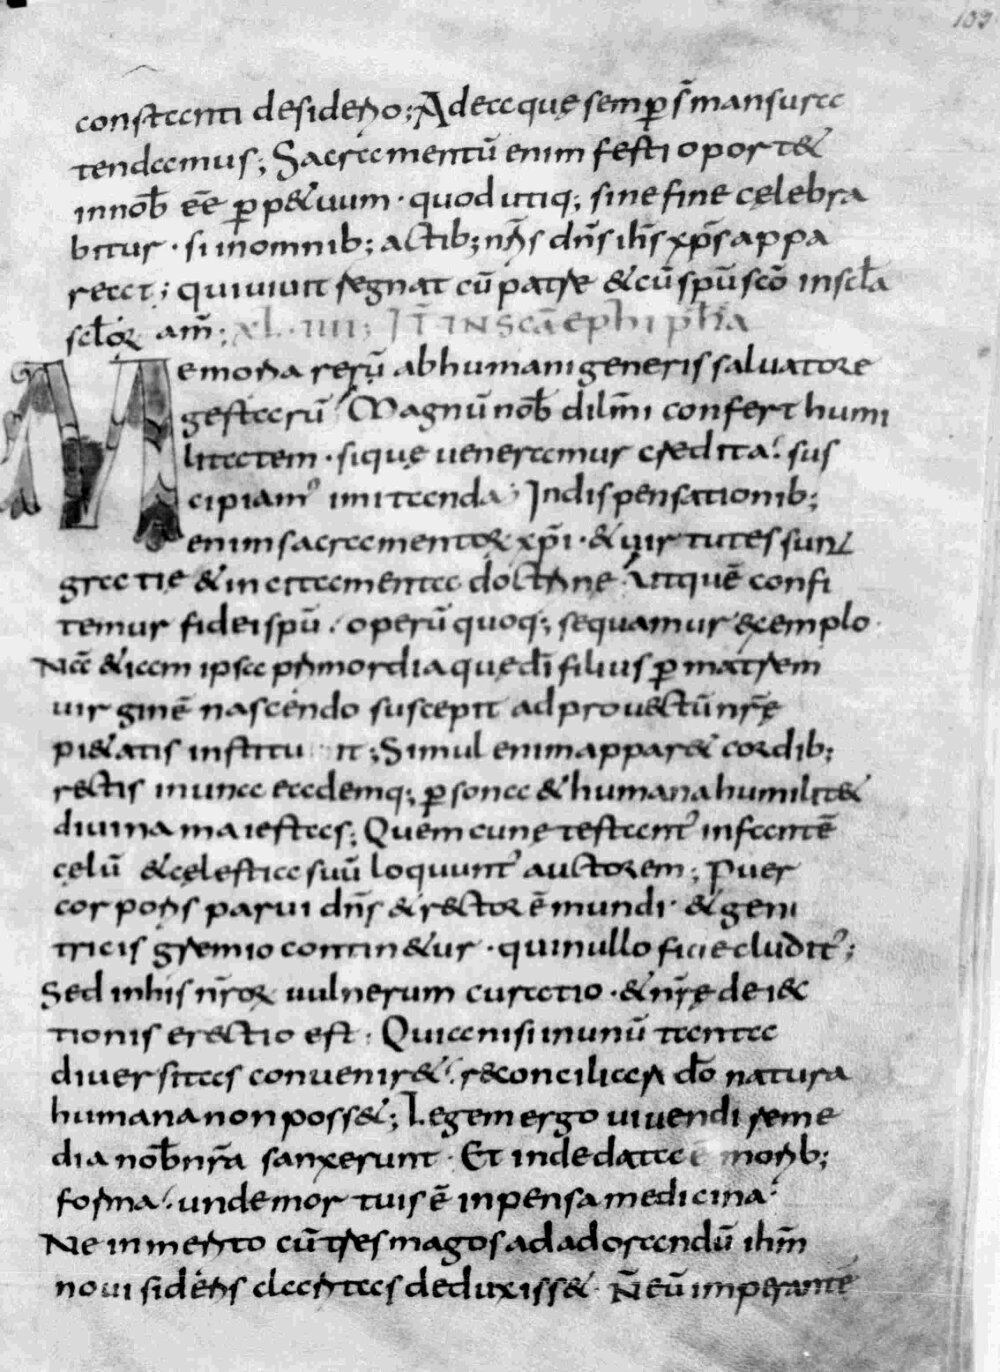 109
constanti desiderio; Adea que semp̄ s̄ mansura
tendamus; Sacramentū enim festi oportet
in nob̄ eē p̄petuum · quod utiq; sine fine celebra
bitur · si in omnib; actib; nr̄is dn̄s ih̄s xp̄s appa
reat; qui uiuit regnat cū patre & cū spū scō in scl̄a
scl̄oꝝ am̄; XLIIII; IT̄ IN SCĀ EPhI PhĪA
Memoria rerū ab humani generis saluatore
gestarū Magnū nob̄ dil̄mi confert humi
litatem · si que ueneramur credita · sus
cipiamꝰ imitanda · In dispensationib;
enim sacramentoꝝ xp̄i · & uirtutes sunt
gratie & incitamenta doctrine Ut quē confi
temur fidei spū · operū quoq; sequamur exemplo ·
Nā & iam ipsa primordia que dī filius p̄ matrem
uirginē nascendo suscepit ad prouectū nr̄ę
pietatis instituunt; Simul enim apparet cordib;
rectis in una eademq; p̄sona & humana humilitas &
diuina maiestas; Quem cunę testantᷣ infantē
cęlū & cęlestia suū loquuntᷣ auctorem; Puer
corporis parui dn̄s & rector ē mundi · & geni
tricis gremio continetur · qui nullo fine cluditᷣ;
Sed in his nr̄oꝝ uulnerum curatio · & nr̄ę deiec
tionis erectio est · Quia nisi in unū tanta
diuersitas conueniret · reconciliari dō natura
humana non posset; Legem ergo uiuendi reme
dia nob̄ nr̄a sanxerunt · Et inde data ē morib;
forma · unde mortuis ē inpensa medicina ·
Ne inmerito cū tres magos ad adorandū ih̄m
noui sideris claritas deduxisset · N̄ eū imperantē